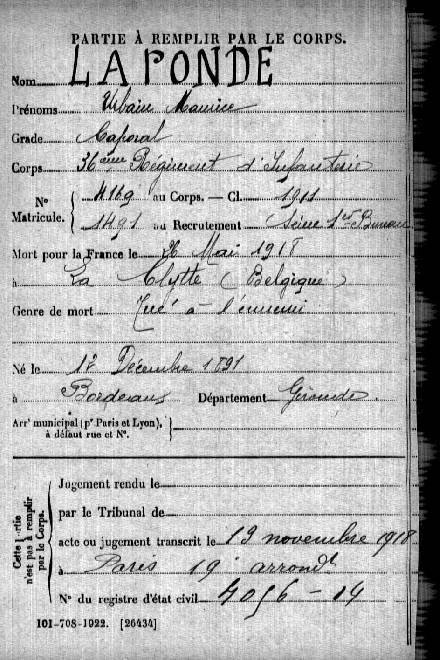 PARTIE À REMPLIR PAR LE CORPS.
Nom LAPONDE
Prénoms Urbain Maurice
Grade Caporal
Corps 36ème Régiment d'Infanterie
N° Matricule. { 4169 au Corps. — Cl. 1911
1491 au Recrutement Seine 1er Bureau
Mort pour la France le 26 Mai 1918
à La Clytte (Belgique)
Genre de mort Tué à l'ennemi
Né le 17 Décembre 1891
à Bordeaux Département Gironde.
Arrt municipal (pr Paris et Lyon), à défaut rue et N°. }
Cette partie n'est pas à remplir par le Corps.
Jugement rendu le
par le Tribunal de
acte ou jugement transcrit le 19 novembre 1918
à Paris 19e arrondt
N° du registre d'état civil 4056 - 14
101-708-1922. [26434]